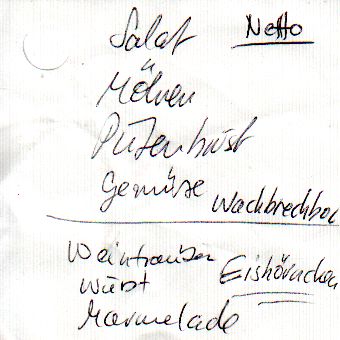 Salat Netto
Möhren
Putenbrust
Gemüse
Weintrauben
Eishörnchen
Wurst
Marmelade